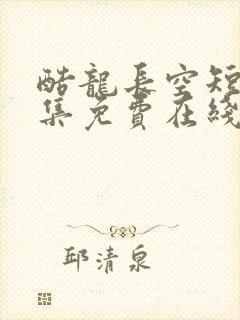 酷龍長空短
集免費在綫
邱清泉